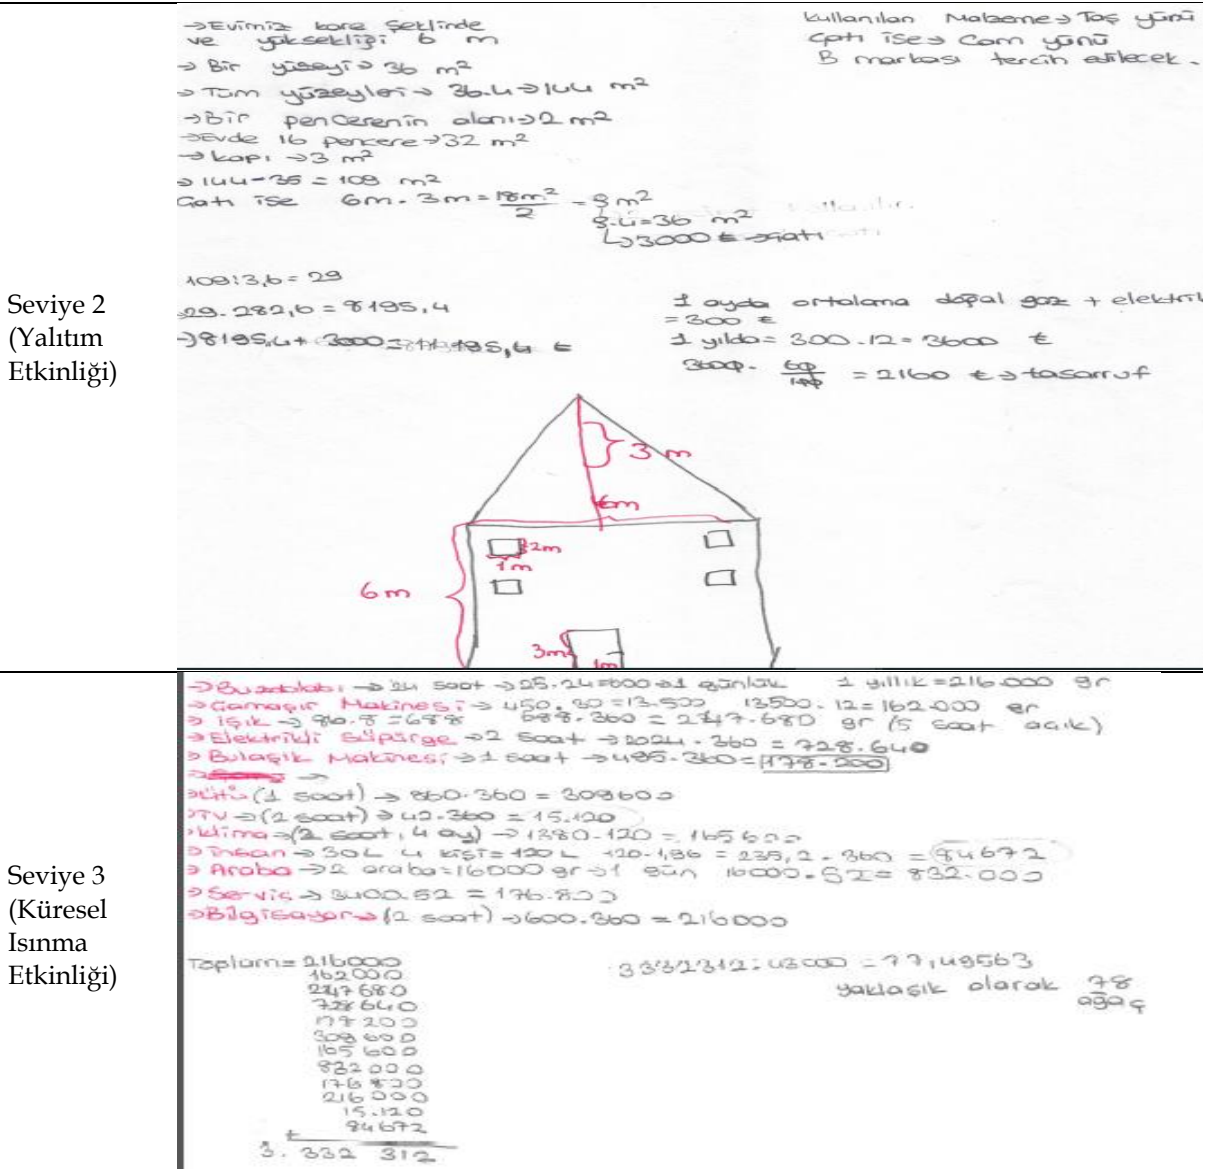 Seviye 2
(Yalıtım
Etkinliği)
→Evimiz kare şeklinde
ve yüksekliği 6 m
→ Bir yüzeyi→ 36 m²
→ Tüm yüzeyleri→ 36.4→144 m²
→Bir pencerenin alanı→2 m²
→Evde 16 pencere→32 m²
→kapı →3 m²
→144-35 = 109 m²
Çatı ise 6m. 3m = 18m²/2 = 9 m²
9.4=36 m²
↳3000 ₺ →çatı
109:3,6 = 29
29. 282,6 = 8195,4
→8195,4+ 3000= 11195,4 ₺
Kullanılan Malzeme→ Taş yünü
Çatı ise→ Cam yünü
B markası tercih edilecek.
1 ayda ortalama doğal gaz + elektrik
= 300 ₺
1 yılda= 300.12= 3600 ₺
3600. 60/100 = 2160 ₺→ tasarruf
3 m
6m
2m
1m
6 m
3m
1m
Seviye 3
(Küresel
Isınma
Etkinliği)
→Buzdolabı → 24 saat →25.24=600→1 günlük 1 yıllık=216.000 gr
→Çamaşır Makinesi→ 450.30=13.500 13500.12=162.000 gr
→ Işık → 86.8=688 688.360 = 247.680 gr (5 saat açık)
→Elektrikli Süpürge →2 saat →2024.360 = 728.640
→Bulaşık Makinesi→1 saat →495.360=178.200
→Ütü (1 saat) → 860.360 = 309600
→TV →(2 saat) → 42.360 = 15.120
→Klima→(2 saat, 4 ay) →1380.120 = 165600
→İnsan→30L 4 kişi=120 L 120.1,96 = 235,2.360 = 84672
→ Araba →2 araba=16000 gr→1 gün 16000.52= 832.000
→Servis→3400.52 = 176.800
→Bilgisayar→(2 saat) →600.360 = 216000
Toplam= 216000
162000
247680
728640
178200
309600
165600
832000
176800
216000
15.120
84672
+
3.332 312
3332312:43000 = 77,49563
yaklaşık olarak 78
ağaç